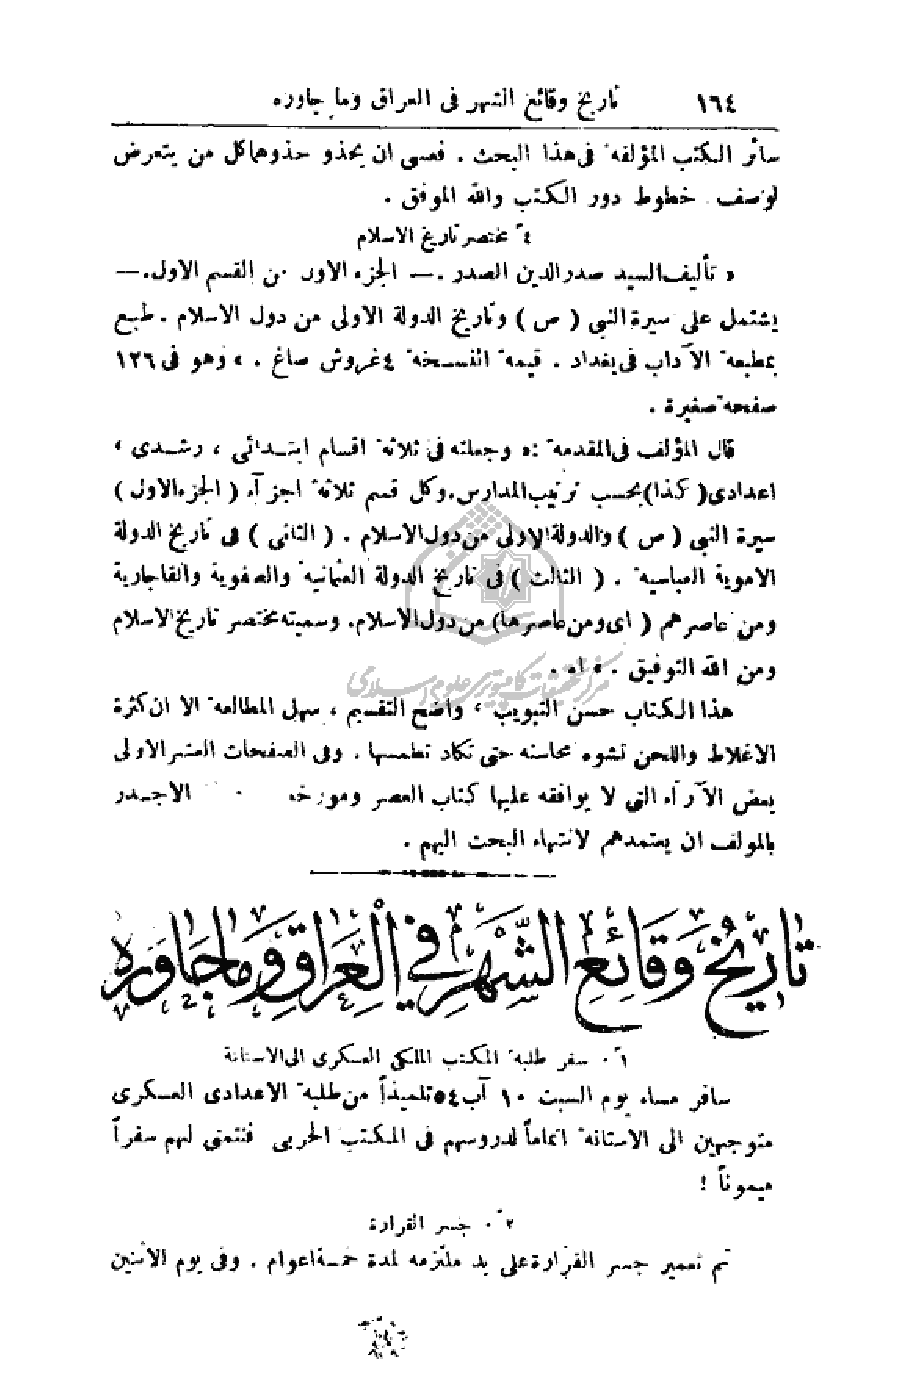 ١٦٤ تاريخ وقائع الشهر في العراق وما جاوره
سائر الكتب المؤلفة في هذا البحث . فعسى ان يحذو حذوها كل من يتعرض
لوصف خطوط دور الكتب والله الموفق .
٤ً مختصر تاريخ الاسلام
« تأليف السيد صدر الدين الصدر . — الجزء الاول من القسم الاول . —
يشتمل على سيرة النبي ( ص ) وتاريخ الدولة الاولى من دول الاسلام . طبع
بمطبعة الآداب في بغداد . قيمة النسخة ٤ غروش صاغ . » وهو في ١٢٦
صفحة صغيرة .
قال المؤلف في المقدمة : « وجعلته في ثلاثة اقسام ابتدائي ، رشدي ،
اعدادي ( كذا ) بحسب ترتيب المدارس . وكل قسم ثلاثة اجزآء ( الجزء الاول )
سيرة النبي ( ص ) والدولة الاولى من دول الاسلام . ( الثاني ) في تاريخ الدولة
الاموية العباسية . ( الثالث ) في تاريخ الدولة العثمانية والصفوية والقاجارية
ومن عاصرهم ( اي ومن عاصرها ) من دول الاسلام . وسميته مختصر تاريخ الاسلام
ومن الله التوفيق . » اه .
مركز تحقيقات كامپيوترى علوم اسلامى
هذا الكتاب حسن التبويب ، واضح التقسيم ، سهل المطالعة الا ان كثرة
الاغلاط واللحن تشوه محاسنه حتى تكاد تطمسها . وفي الصفحات العشر الاولى
بعض الآرآء التي لا يوافقه عليها كتاب العصر ومورخـ الاجدر
بالمولف ان يعتمدهم لانتهاء البحث اليهم .
تاريخ وقائع الشهر في العراق وما جاوره
١ً . سفر طلبة المكتب الملكي العسكري الى الاستانة
سافر مساء يوم السبت ١٠ آب ٥٤ تلميذاً من طلبة الاعدادي العسكري
متوجهين الى الاستانة اتماماً لدروسهم في المكتب الحربي فنتمنى لهم سفراً
ميموناً !
٢ً . جسر القرادة
تم تعمير جسر القرارة على يد ملتزمه لمدة خمسة اعوام . وفي يوم الاثنين